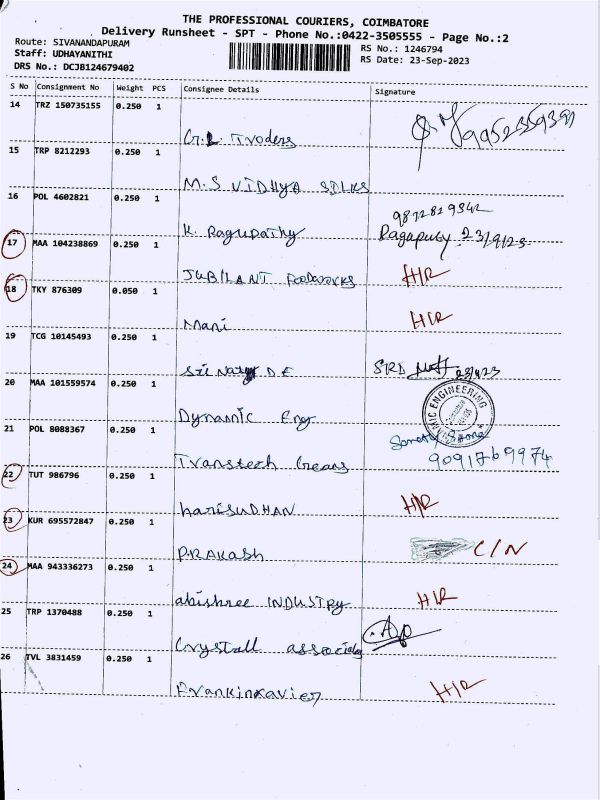 THE PROFESSIONAL COURIERS, COIMBATORE
Delivery Runsheet - SPT - Phone No.:0422-3505555 - Page No.:2
Route: SIVANANDAPURAM
RS No.: 1246794
Staff: UDHAYANITHI
RS Date: 23-Sep-2023
DRS No.: DCJB124679402
S No Consignment No Weight PCS Consignee Details Signature
14 TRZ 150735155 0.250 1
Traders
15 TRP 8212293 0.250 1
M.S VIDHYA SILKS
16 POL 4602821 0.250 1
9872829342
K. Ragupathy
23/9/23
17 MAA 104238869 0.250 1
JUBILANT Foodworks H/R
18 TKY 876309 0.050 1
Mani H/R
19 TCG 10145493 0.250 1
Sri D E
20 MAA 101559574 0.250 1
DYNAMIC ENGINEERING
Dynamic Eng
21 POL 8088367 0.250 1
Transtech
9091769974
22 TUT 986796 0.250 1
hariSUDHAN H/R
23 KUR 695572847 0.250 1
PRAKash C/N
24 MAA 943336273 0.250 1
abishree INDUSTRY H/R
25 TRP 1370488 0.250 1
Crystall
26 TVL 3831459 0.250 1
H/R